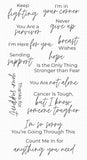 Keep
fighting
I'm in
your corner
You Are a
survivor
Never
give up
I'm Here for you
breast
Wishes
Sending
support
hope
Is the Only Thing
Stronger than Fear
Thanks for
You are not alone
Cancer Is Tough,
but I know
someone tougher
I'm so sorry
You're Going Through This
Count Me in for
anything you need